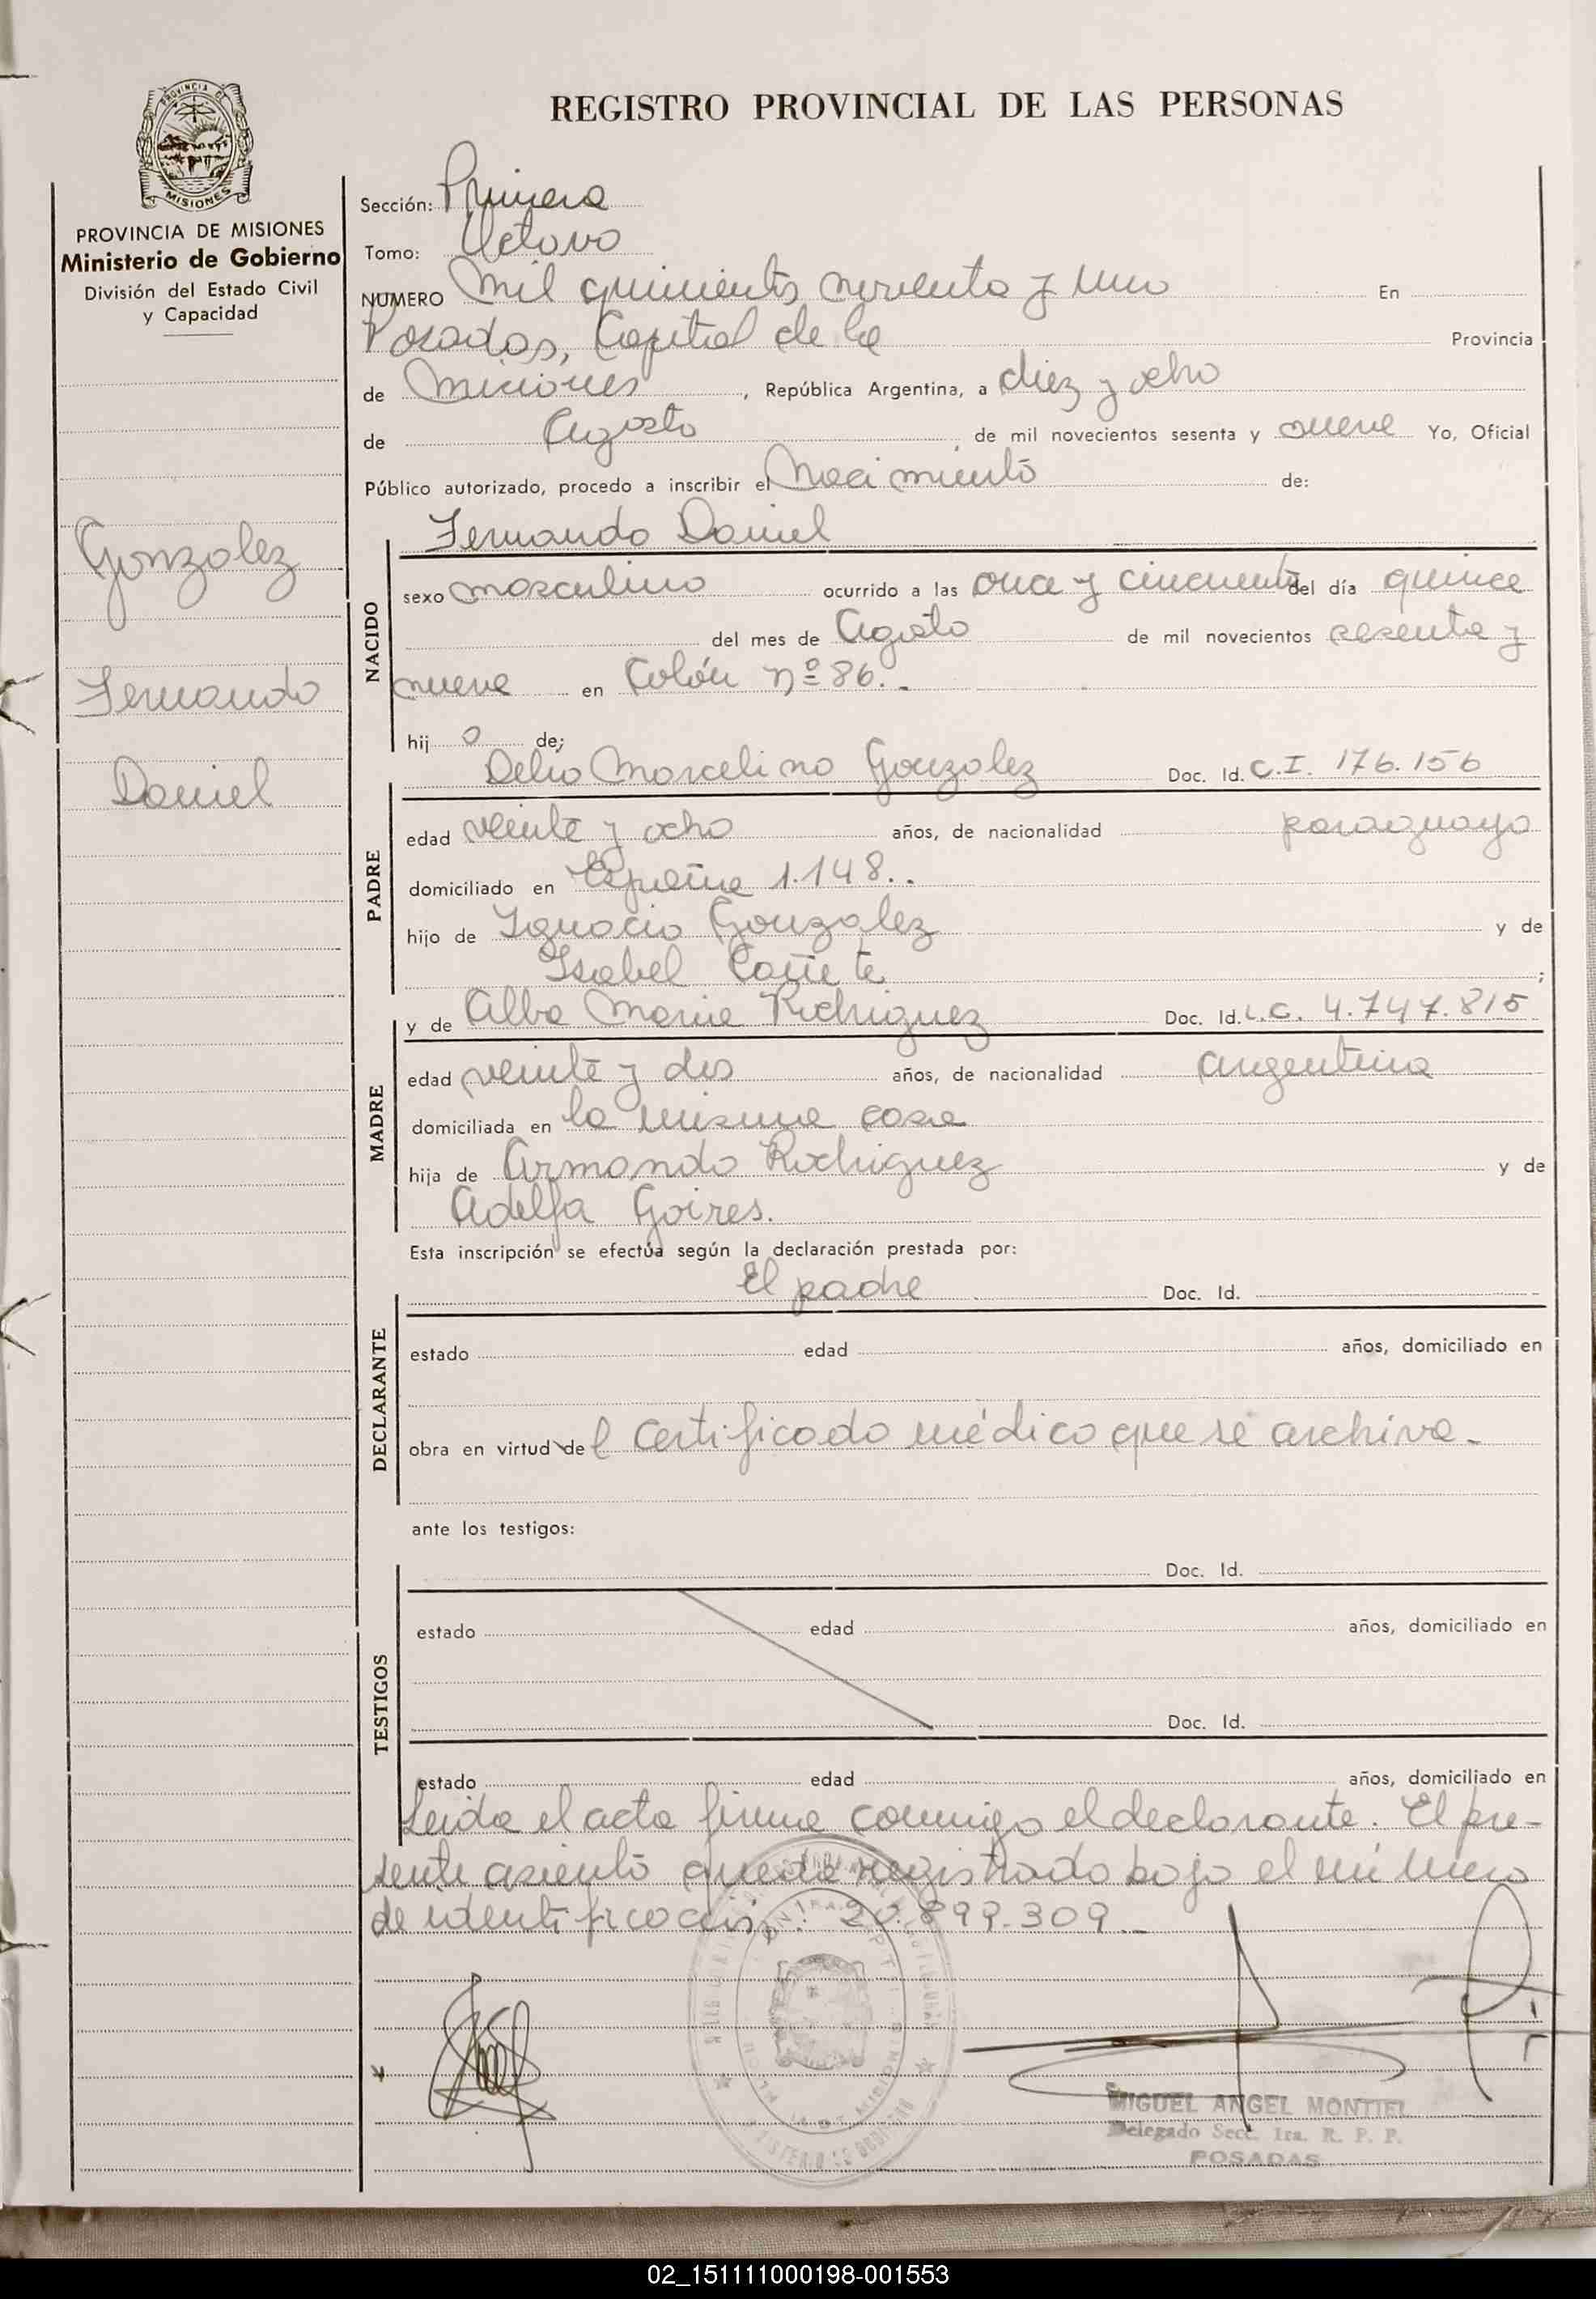 REGISTRO PROVINCIAL DE LAS PERSONAS
PROVINCIA DE
MISIONES
PROVINCIA DE MISIONES
Ministerio de Gobierno
División del Estado Civil
y Capacidad
Gonzalez
Fernando
Daniel
Sección: Primera
Tomo: Octavo
NUMERO Mil quinientos noventa y uno En
Posadas, Capital de la Provincia
de Misiones, República Argentina, a diez y ocho
de Agosto de mil novecientos sesenta y nueve Yo, Oficial
Público autorizado, procedo a inscribir el Nacimiento de:
Fernando Daniel
NACIDO
sexo masculino ocurrido a las once y cincuenta del día quince
del mes de Agosto de mil novecientos sesenta y
nueve en Colón nº 86.-
hij o de;
Delio Marcelino Gonzalez Doc. Id. C.I. 176.156
PADRE
edad veinte y ocho años, de nacionalidad paraguayo
domiciliado en España 1.148..
hijo de Ignacio Gonzalez y de
Isabel Cañete ;
y de Alba Maria Rodriguez Doc. Id. L.C. 4.747.815
MADRE
edad veinte y dos años, de nacionalidad argentina
domiciliada en la misma casa
hija de Armando Rodriguez y de
Adelfa Goires.
Esta inscripción se efectúa según la declaración prestada por:
El padre Doc. Id.
DECLARANTE
estado edad años, domiciliado en
obra en virtud de l certificado médico que se archiva.-
ante los testigos:
Doc. Id.
TESTIGOS
estado edad años, domiciliado en
Doc. Id.
estado edad años, domiciliado en
Leida el acta firma conmigo el declarante. El pre-
sente asiento queda registrado bajo el número
de identificación: 20.899.309.-
MIGUEL ANGEL MONTIEL
Delegado Secc. 1ra. R. P. P.
POSADAS
02_151111000198-001553